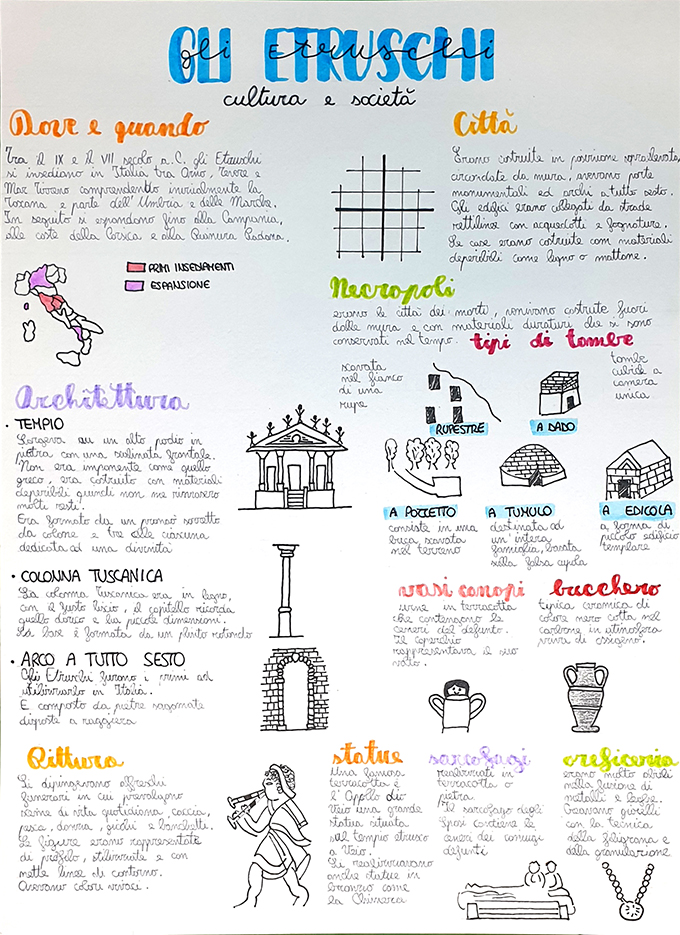 GLI ETRUSCHI
gli Etruschi
cultura e società
Dove e quando
Tra il IX e il VII secolo a.C. gli Etruschi
si insediano in Italia tra Arno, Tevere e
Mar Tirreno comprendendo inizialmente la
Toscana e parte dell'Umbria e delle Marche.
In seguito si espandono fino alla Campania,
alle coste della Corsica e alla Pianura Padana.
PRIMI INSEDIAMENTI
ESPANSIONE
Città
Erano costruite in posizione sopraelevata,
circondate da mura, avevano porte
monumentali ed archi a tutto sesto.
Gli edifici erano collegati da strade
rettilinee con acquedotti e fognature.
Le case erano costruite con materiali
deperibili come legno o mattone.
Necropoli
erano le città dei morti, venivano costruite fuori
dalle mura e con materiali duraturi che si sono
conservati nel tempo.
tipi di tombe
scavata
nel fianco
di una
rupe
RUPESTRE
A DADO
tombe
cubide a
camera
unica
A POZZETTO
consiste in una
buca scavata
nel terreno
A TUMULO
destinata ad
un'intera
famiglia, basata
sulla falsa cupola
A EDICOLA
a forma di
piccolo edificio
templare
Architettura
• TEMPIO
Sorgeva su un alto podio in
pietra con una scalinata frontale.
Non era imponente come quello
greco, era costruito con materiali
deperibili quindi non ne rimasero
molti resti.
Era formato da un pronao sorretto
da colonne e tre celle ciascuna
dedicata ad una divinità
• COLONNA TUSCANICA
La colonna Tuscanica era in legno,
con il fusto liscio, il capitello ricorda
quello dorico e ha piccole dimensioni.
La base è formata da un plinto rotondo
• ARCO A TUTTO SESTO
Gli Etruschi furono i primi ad
utilizzarlo in Italia.
È composto da pietre sagomate
disposte a raggiera
vasi canopi
urne in terracotta
che contengono le
ceneri del defunto.
Il coperchio
rappresentava il suo
volto.
bucchero
tipica ceramica di
colore nero cotta nel
carbone in atmosfera
priva di ossigeno.
Pittura
Si dipingevano affreschi
funerari in cui prevalgono
scene di vita quotidiana, caccia,
pesca, danza, giochi e banchetti.
Le figure erano rappresentate
di profilo, stilizzate e con
nette linee di contorno.
Avevano colori vivaci.
statue
Una famosa
terracotta è
l'Apollo di
Veio una grande
statua situata
sul tempio etrusco
a Veio.
Si realizzavano
anche statue in
bronzo come
la Chimera
sarcofagi
realizzati in
terracotta o
pietra.
Il sarcofago degli
Sposi contiene le
ceneri dei coniugi
defunti
oreficeria
erano molto abili
nella fusione di
metalli e leghe.
Creavano gioielli
con la tecnica
della filigrana e
della granulazione